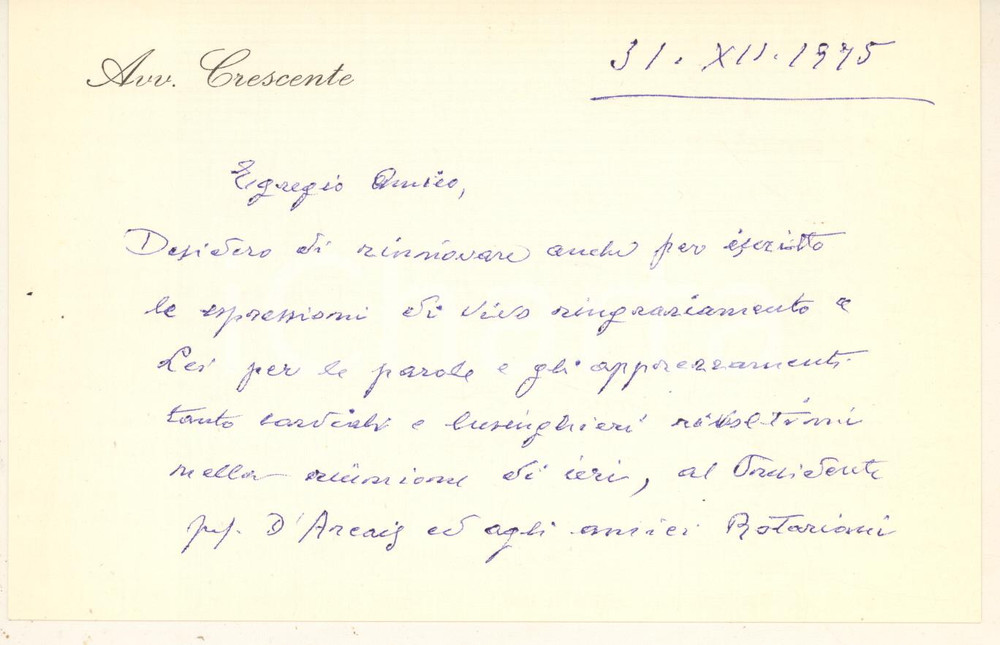 Avv. Crescente
31. XII. 1975
Egregio Amico,
Desidero di rinnovare anche per iscritto
le espressioni di vivo ringraziamento a
Lei per le parole e gli apprezzamenti
tanto cordiali e lusinghieri rivoltimi
nella riunione di ieri, al Presidente
prof. D'Arcais ed agli amici Rotariani